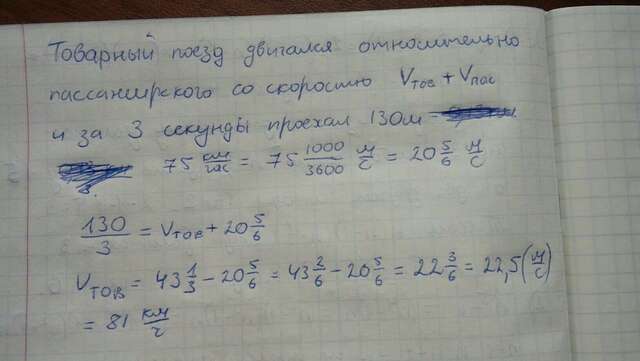 Товарный поезд двигался относительно
пассажирского со скоростью Vтов + Vпас
и за 3 секунды проехал 130м
75 км/час = 75 1000/3600 м/с = 20 5/6 м/с
130/3 = Vтов + 20 5/6
Vтов = 43 1/3 - 20 5/6 = 43 2/6 - 20 5/6 = 22 3/6 = 22,5 (м/с)
= 81 км/ч